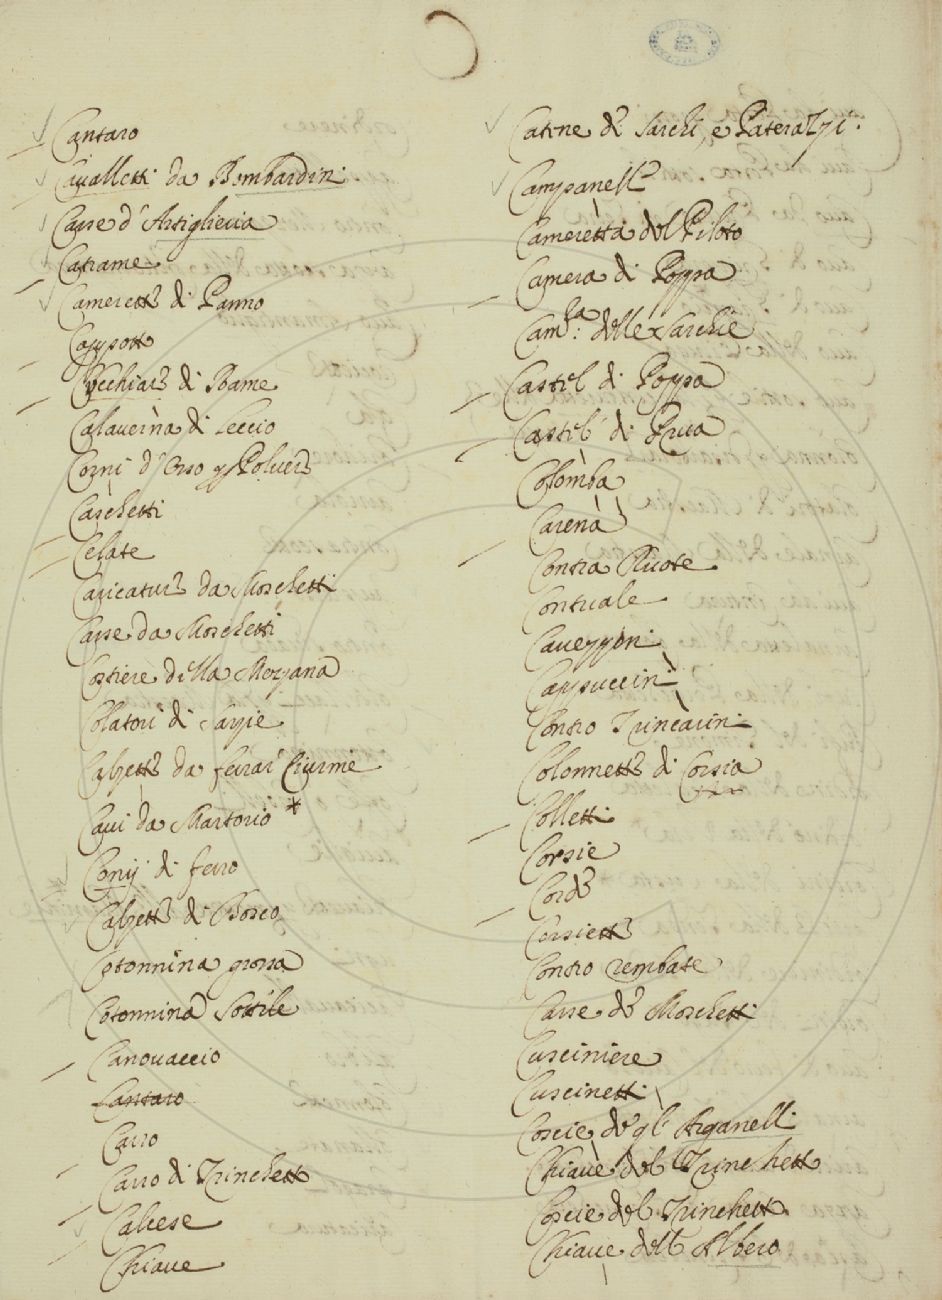 C
Cantaro
Cavalletti da Bombardini
Casse d'Artiglieria
Catrame
Camerette di Panno
Cappotto
Cucchiare di Rame
Calaverna di Leccio
Corni d'Osso p Polvere
Carchetti
Celate
Caricature da Moschetti
Casse da Moschetti
Costiere della Mezzana
Colatori di Sarzie
Calzette da ferrar Ciurme
Cavi da Martorio *
Conij di ferro
Calzette di Bosco
Cotonnina grossa
Cotonnina Sottile
Canovaccio
Cantaro
Carro
Carro di Trinchetto
Calcese
Chiave
Catene di Sarchi, e Paterazzi.
Campanelle
Cameretta del Piloto
Camera di Poppa
Cam.ra delle Sarchie
Castel di Poppa
Castel di Prua
Colomba
Carena
Contra Ruote
Contuale
Cavezzoni
Cappuccini
Contro Trincarini
Colonnette di Corsia
Colletti
Corsie
Corde
Corsiette
Contro rembate
Casse de Moschetti
Cusciniere
Cuscinetti
Coscie degl' Arganelli
Chiave del Trinchetto
Coscie del Trinchetto
Chiave dell Albero